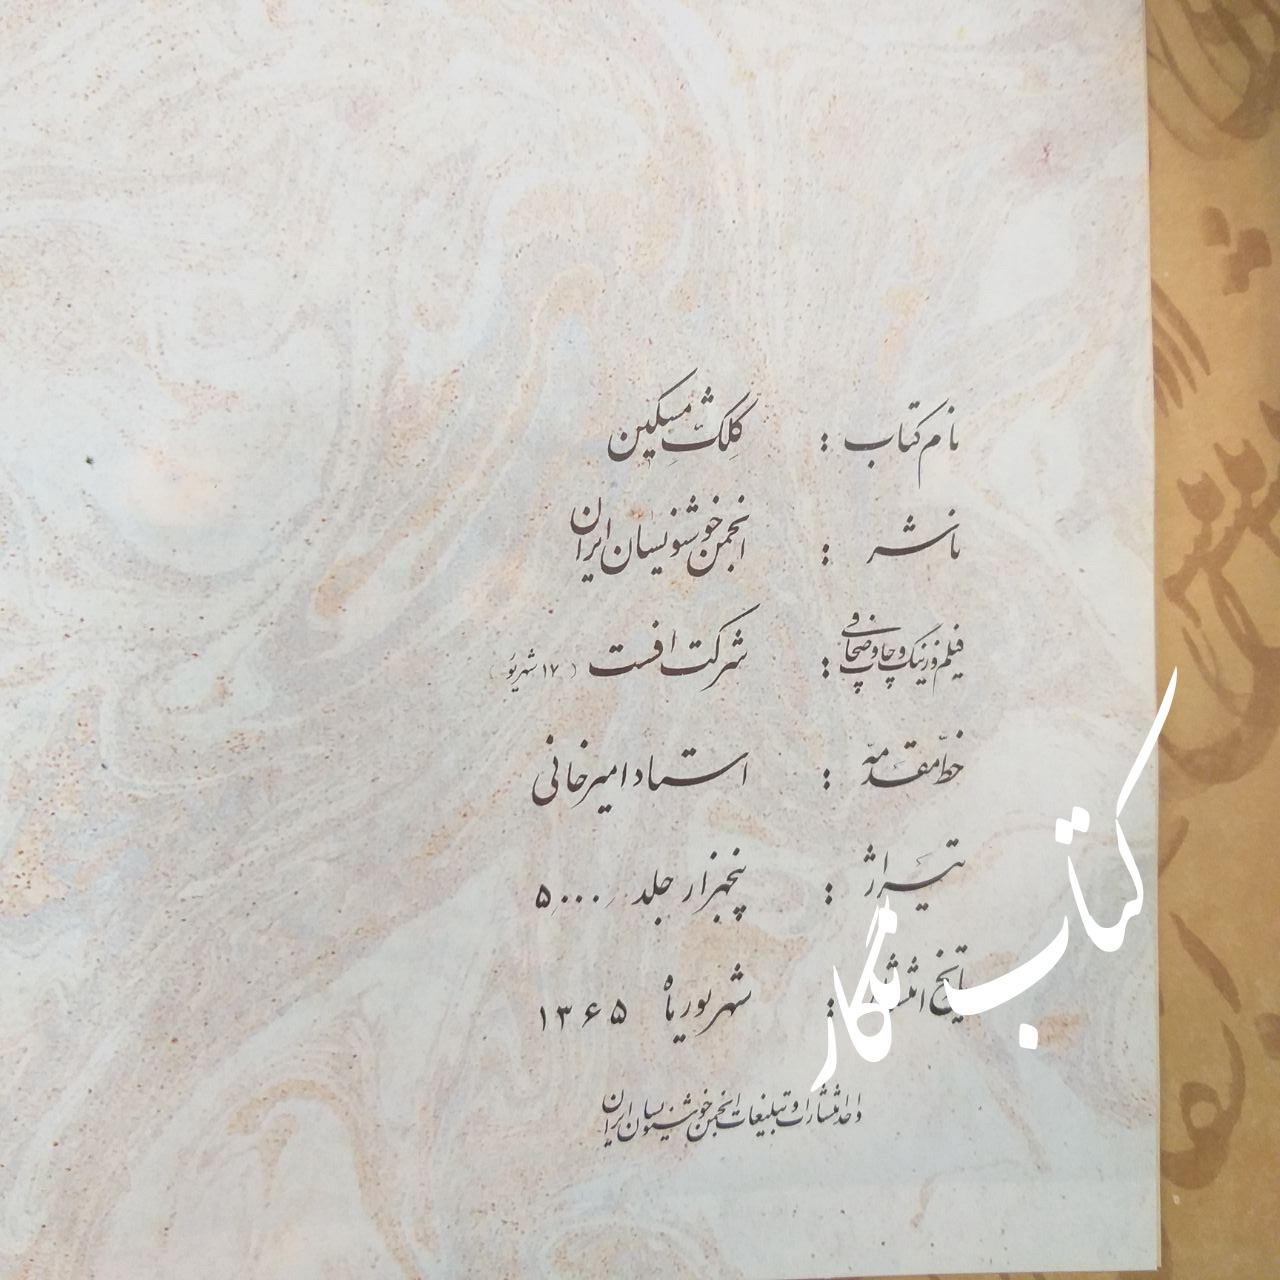 نام کتاب : کلک مشکین
ناشر : انجمن خوشنویسان ایران
فیلم و زینگ و چاپ و صحافی : شرکت افست ( ۱۷ شهریور )
خط مقدمه : استاد امیرخانی
تیراژ : پنجهزار جلد ۵۰۰۰
تاریخ انتشار : شهریور ماه ۱۳۶۵
واحد انتشارات و تبلیغات انجمن خوشنویسان ایران
کتاب نگار